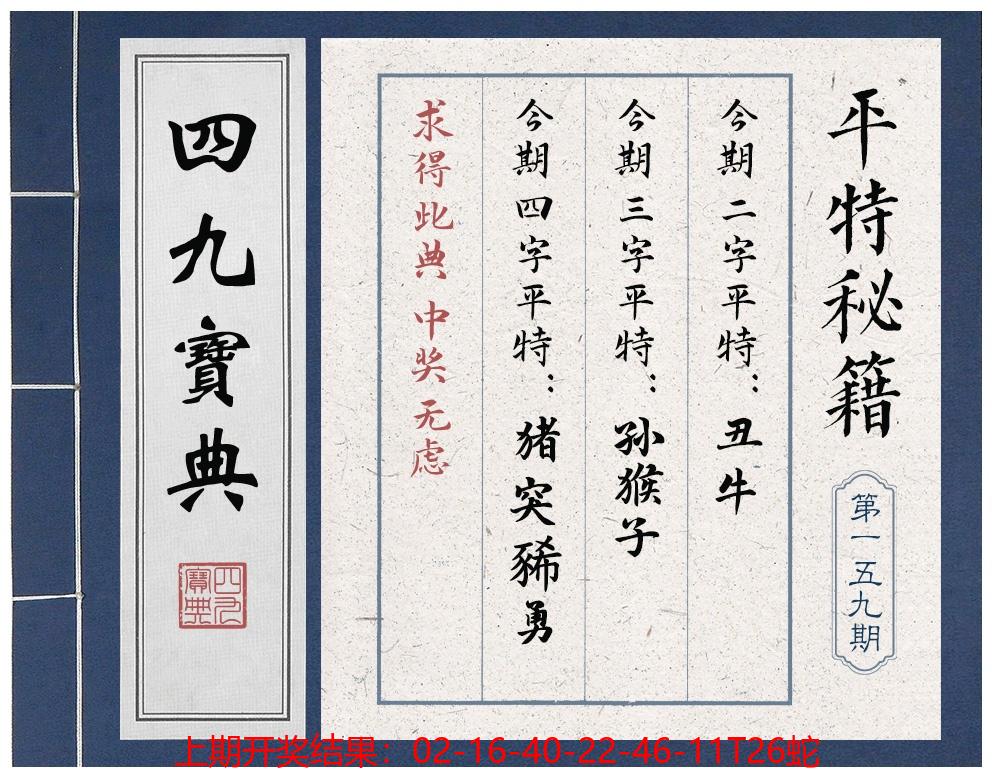 平特秘籍
第一五九期
今期二字平特：丑牛
今期三字平特：孙猴子
今期四字平特：猪突豨勇
求得此典 中奖无虑
四九寶典
四九寶典
上期开奖结果：02-16-40-22-46-11T26蛇